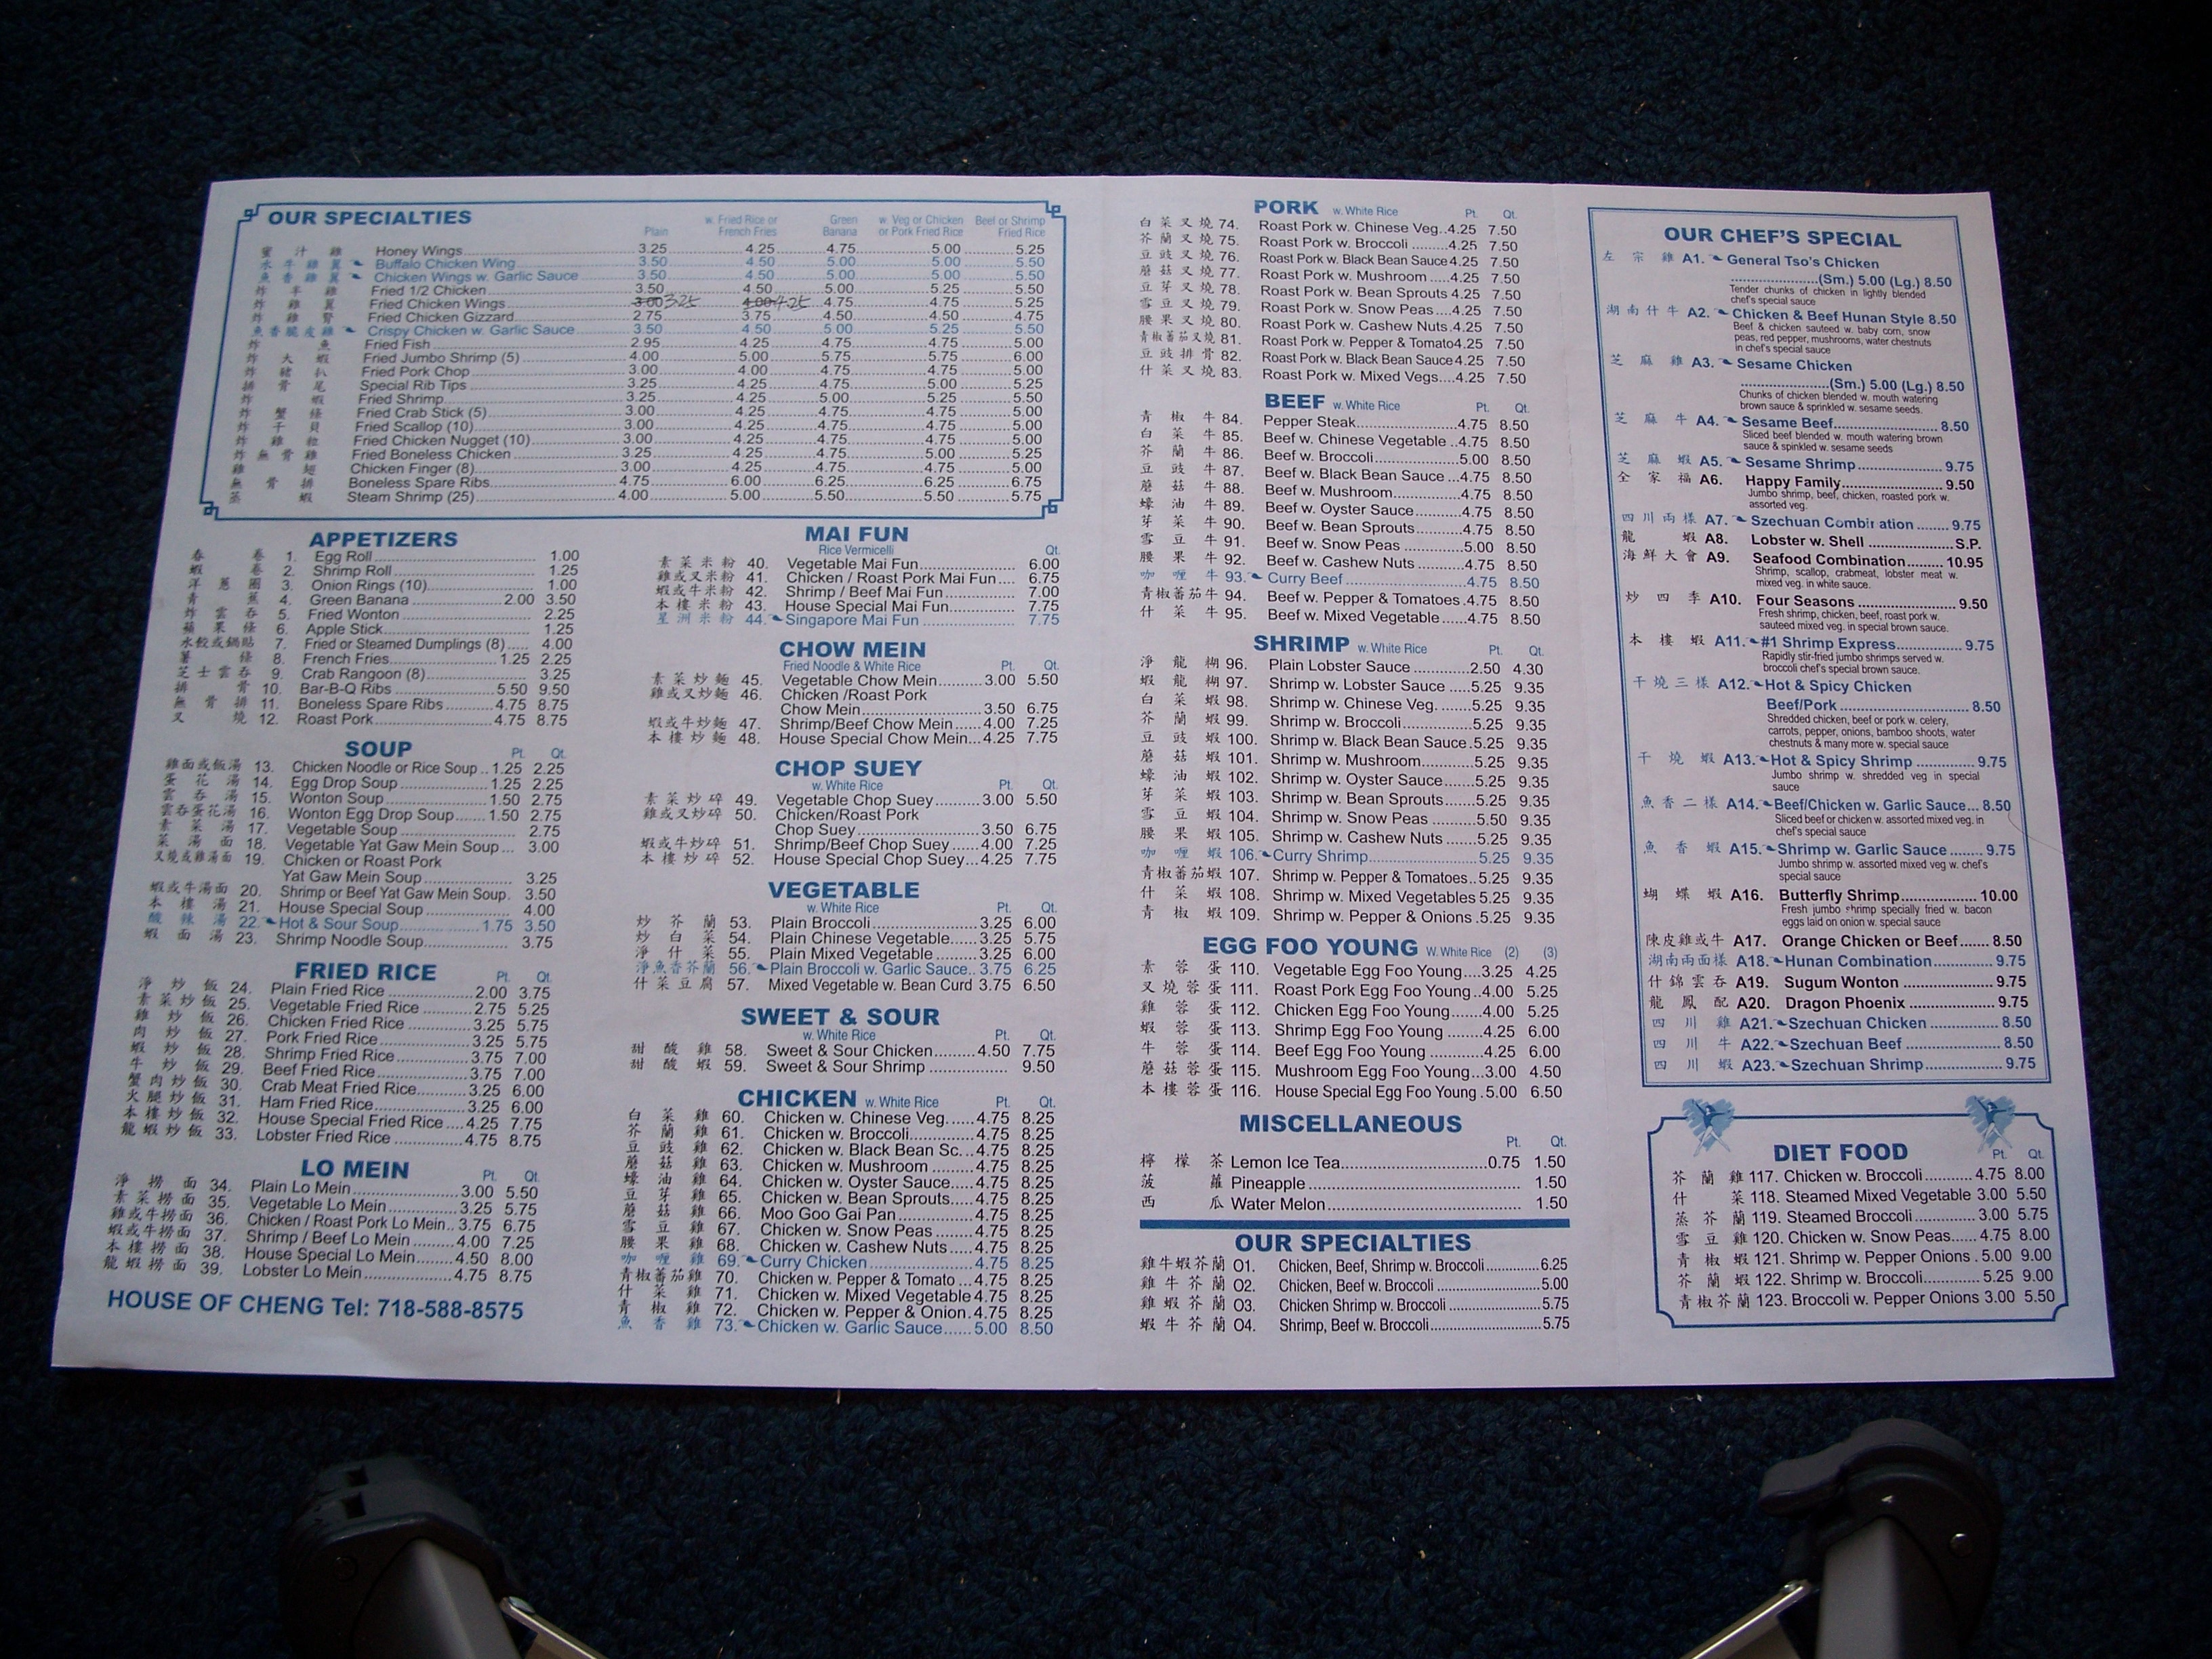 OUR SPECIALTIES
Plain w. Fried Rice or French Fries Green Banana w. Veg or Chicken or Pork Fried Rice Beef or Shrimp Fried Rice
蜜汁雞 Honey Wings 3.25 4.25 4.75 5.00 5.25
水牛雞翼 Buffalo Chicken Wing 3.50 4.50 5.00 5.00 5.50
魚香雞翼 Chicken Wings w. Garlic Sauce 3.50 4.50 5.00 5.00 5.50
炸半雞 Fried 1/2 Chicken 3.50 4.50 5.00 5.25 5.50
炸雞翼 Fried Chicken Wings 3.00 3.25 4.00 4.25 4.75 4.75 5.25
炸雞腎 Fried Chicken Gizzard 2.75 3.75 4.50 4.50 4.75
魚香脆皮雞 Crispy Chicken w. Garlic Sauce 3.50 4.50 5.00 5.25 5.50
炸魚 Fried Fish 2.95 4.25 4.75 4.75 5.00
炸大蝦 Fried Jumbo Shrimp (5) 4.00 5.00 5.75 5.75 6.00
炸豬扒 Fried Pork Chop 3.00 4.00 4.75 4.75 5.00
排骨尾 Special Rib Tips 3.25 4.25 4.75 5.00 5.25
炸蝦 Fried Shrimp 3.25 4.25 5.00 5.25 5.50
炸蟹條 Fried Crab Stick (5) 3.00 4.25 4.75 4.75 5.00
炸干貝 Fried Scallop (10) 3.00 4.25 4.75 4.75 5.00
炸雞粒 Fried Chicken Nugget (10) 3.00 4.25 4.75 4.75 5.00
炸無骨雞 Fried Boneless Chicken 3.25 4.25 4.75 5.00 5.25
雞翅 Chicken Finger (8) 3.00 4.25 4.75 4.75 5.00
無骨排 Boneless Spare Ribs 4.75 6.00 6.25 6.25 6.75
蒸蝦 Steam Shrimp (25) 4.00 5.00 5.50 5.50 5.75
APPETIZERS
春卷 1. Egg Roll 1.00
蝦卷 2. Shrimp Roll 1.25
洋蔥圈 3. Onion Rings (10) 1.00
青蕉 4. Green Banana 2.00 3.50
炸雲吞 5. Fried Wonton 2.25
蘋果條 6. Apple Stick 1.25
水餃或鍋貼 7. Fried or Steamed Dumplings (8) 4.00
薯條 8. French Fries 1.25 2.25
芝士雲吞 9. Crab Rangoon (8) 3.25
排骨 10. Bar-B-Q Ribs 5.50 9.50
無骨排 11. Boneless Spare Ribs 4.75 8.75
叉燒 12. Roast Pork 4.75 8.75
SOUP Pt. Qt.
雞面或飯湯 13. Chicken Noodle or Rice Soup 1.25 2.25
蛋花湯 14. Egg Drop Soup 1.25 2.25
雲吞湯 15. Wonton Soup 1.50 2.75
雲吞蛋花湯 16. Wonton Egg Drop Soup 1.50 2.75
素菜湯 17. Vegetable Soup 2.75
菜湯面 18. Vegetable Yat Gaw Mein Soup 3.00
叉燒或雞湯面 19. Chicken or Roast Pork
Yat Gaw Mein Soup 3.25
蝦或牛湯面 20. Shrimp or Beef Yat Gaw Mein Soup 3.50
本樓湯 21. House Special Soup 4.00
酸辣湯 22. Hot & Sour Soup 1.75 3.50
蝦面湯 23. Shrimp Noodle Soup 3.75
FRIED RICE Pt. Qt.
淨炒飯 24. Plain Fried Rice 2.00 3.75
素菜炒飯 25. Vegetable Fried Rice 2.75 5.25
雞炒飯 26. Chicken Fried Rice 3.25 5.75
肉炒飯 27. Pork Fried Rice 3.25 5.75
蝦炒飯 28. Shrimp Fried Rice 3.75 7.00
牛炒飯 29. Beef Fried Rice 3.75 7.00
蟹肉炒飯 30. Crab Meat Fried Rice 3.25 6.00
火腿炒飯 31. Ham Fried Rice 3.25 6.00
本樓炒飯 32. House Special Fried Rice 4.25 7.75
龍蝦炒飯 33. Lobster Fried Rice 4.75 8.75
LO MEIN Pt. Qt.
淨撈面 34. Plain Lo Mein 3.00 5.50
素菜撈面 35. Vegetable Lo Mein 3.25 5.75
雞或牛撈面 36. Chicken / Roast Pork Lo Mein 3.75 6.75
蝦或牛撈面 37. Shrimp / Beef Lo Mein 4.00 7.25
本樓撈面 38. House Special Lo Mein 4.50 8.00
龍蝦撈面 39. Lobster Lo Mein 4.75 8.75
HOUSE OF CHENG Tel: 718-588-8575
MAI FUN
Rice Vermicelli Qt.
素菜米粉 40. Vegetable Mai Fun 6.00
雞或叉米粉 41. Chicken / Roast Pork Mai Fun 6.75
蝦或牛米粉 42. Shrimp / Beef Mai Fun 7.00
本樓米粉 43. House Special Mai Fun 7.75
星洲米粉 44. Singapore Mai Fun 7.75
CHOW MEIN
Fried Noodle & White Rice Pt. Qt.
素菜炒麵 45. Vegetable Chow Mein 3.00 5.50
雞或叉炒麵 46. Chicken /Roast Pork
Chow Mein 3.50 6.75
蝦或牛炒麵 47. Shrimp/Beef Chow Mein 4.00 7.25
本樓炒麵 48. House Special Chow Mein 4.25 7.75
CHOP SUEY
w. White Rice Pt. Qt.
素菜炒碎 49. Vegetable Chop Suey 3.00 5.50
雞或叉炒碎 50. Chicken/Roast Pork
Chop Suey 3.50 6.75
蝦或牛炒碎 51. Shrimp/Beef Chop Suey 4.00 7.25
本樓炒碎 52. House Special Chop Suey 4.25 7.75
VEGETABLE
w. White Rice Pt. Qt.
炒芥蘭 53. Plain Broccoli 3.25 6.00
炒白菜 54. Plain Chinese Vegetable 3.25 5.75
淨什菜 55. Plain Mixed Vegetable 3.25 6.00
淨魚香芥蘭 56. Plain Broccoli w. Garlic Sauce 3.75 6.25
什菜豆腐 57. Mixed Vegetable w. Bean Curd 3.75 6.50
SWEET & SOUR
w. White Rice Pt. Qt.
甜酸雞 58. Sweet & Sour Chicken 4.50 7.75
甜酸蝦 59. Sweet & Sour Shrimp 9.50
CHICKEN w. White Rice Pt. Qt.
白菜雞 60. Chicken w. Chinese Veg. 4.75 8.25
芥蘭雞 61. Chicken w. Broccoli 4.75 8.25
豆豉雞 62. Chicken w. Black Bean Sc. 4.75 8.25
蘑菇雞 63. Chicken w. Mushroom 4.75 8.25
蠔油雞 64. Chicken w. Oyster Sauce 4.75 8.25
豆芽雞 65. Chicken w. Bean Sprouts 4.75 8.25
蘑菇雞 66. Moo Goo Gai Pan 4.75 8.25
雪豆雞 67. Chicken w. Snow Peas 4.75 8.25
腰果雞 68. Chicken w. Cashew Nuts 4.75 8.25
咖喱雞 69. Curry Chicken 4.75 8.25
青椒蕃茄雞 70. Chicken w. Pepper & Tomato 4.75 8.25
什菜雞 71. Chicken w. Mixed Vegetable 4.75 8.25
青椒雞 72. Chicken w. Pepper & Onion 4.75 8.25
魚香雞 73. Chicken w. Garlic Sauce 5.00 8.50
PORK w. White Rice Pt. Qt.
白菜叉燒 74. Roast Pork w. Chinese Veg. 4.25 7.50
芥蘭叉燒 75. Roast Pork w. Broccoli 4.25 7.50
豆豉叉燒 76. Roast Pork w. Black Bean Sauce 4.25 7.50
蘑菇叉燒 77. Roast Pork w. Mushroom 4.25 7.50
豆芽叉燒 78. Roast Pork w. Bean Sprouts 4.25 7.50
雪豆叉燒 79. Roast Pork w. Snow Peas 4.25 7.50
腰果叉燒 80. Roast Pork w. Cashew Nuts 4.25 7.50
青椒蕃茄叉燒 81. Roast Pork w. Pepper & Tomato 4.25 7.50
豆豉排骨 82. Roast Pork w. Black Bean Sauce 4.25 7.50
什菜叉燒 83. Roast Pork w. Mixed Vegs. 4.25 7.50
BEEF w. White Rice Pt. Qt.
青椒牛 84. Pepper Steak 4.75 8.50
白菜牛 85. Beef w. Chinese Vegetable 4.75 8.50
芥蘭牛 86. Beef w. Broccoli 5.00 8.50
豆豉牛 87. Beef w. Black Bean Sauce 4.75 8.50
蘑菇牛 88. Beef w. Mushroom 4.75 8.50
蠔油牛 89. Beef w. Oyster Sauce 4.75 8.50
芽菜牛 90. Beef w. Bean Sprouts 4.75 8.50
雪豆牛 91. Beef w. Snow Peas 5.00 8.50
腰果牛 92. Beef w. Cashew Nuts 4.75 8.50
咖喱牛 93. Curry Beef 4.75 8.50
青椒蕃茄牛 94. Beef w. Pepper & Tomatoes 4.75 8.50
什菜牛 95. Beef w. Mixed Vegetable 4.75 8.50
SHRIMP w. White Rice Pt. Qt.
淨龍糊 96. Plain Lobster Sauce 2.50 4.30
蝦龍糊 97. Shrimp w. Lobster Sauce 5.25 9.35
白菜蝦 98. Shrimp w. Chinese Veg. 5.25 9.35
芥蘭蝦 99. Shrimp w. Broccoli 5.25 9.35
豆豉蝦 100. Shrimp w. Black Bean Sauce 5.25 9.35
蘑菇蝦 101. Shrimp w. Mushroom 5.25 9.35
蠔油蝦 102. Shrimp w. Oyster Sauce 5.25 9.35
芽菜蝦 103. Shrimp w. Bean Sprouts 5.25 9.35
雪豆蝦 104. Shrimp w. Snow Peas 5.50 9.35
腰果蝦 105. Shrimp w. Cashew Nuts 5.25 9.35
咖喱蝦 106. Curry Shrimp 5.25 9.35
青椒蕃茄蝦 107. Shrimp w. Pepper & Tomatoes 5.25 9.35
什菜蝦 108. Shrimp w. Mixed Vegetables 5.25 9.35
青椒蝦 109. Shrimp w. Pepper & Onions 5.25 9.35
EGG FOO YOUNG W. White Rice (2) (3)
素蓉蛋 110. Vegetable Egg Foo Young 3.25 4.25
叉燒蓉蛋 111. Roast Pork Egg Foo Young 4.00 5.25
雞蓉蛋 112. Chicken Egg Foo Young 4.00 5.25
蝦蓉蛋 113. Shrimp Egg Foo Young 4.25 6.00
牛蓉蛋 114. Beef Egg Foo Young 4.25 6.00
蘑菇蓉蛋 115. Mushroom Egg Foo Young 3.00 4.50
本樓蓉蛋 116. House Special Egg Foo Young 5.00 6.50
MISCELLANEOUS
Pt. Qt.
檸檬茶 Lemon Ice Tea 0.75 1.50
菠蘿 Pineapple 1.50
西瓜 Water Melon 1.50
OUR SPECIALTIES
雞牛蝦芥蘭 O1. Chicken, Beef, Shrimp w. Broccoli 6.25
雞牛芥蘭 O2. Chicken, Beef w. Broccoli 5.00
雞蝦芥蘭 O3. Chicken Shrimp w. Broccoli 5.75
蝦牛芥蘭 O4. Shrimp, Beef w. Broccoli 5.75
OUR CHEF'S SPECIAL
左宗雞 A1. General Tso's Chicken
(Sm.) 5.00 (Lg.) 8.50
Tender chunks of chicken in lightly blended
chef's special sauce
湖南什牛 A2. Chicken & Beef Hunan Style 8.50
Beef & chicken sauteed w. baby corn, snow
peas, red pepper, mushrooms, water chestnuts
in chef's special sauce
芝麻雞 A3. Sesame Chicken
(Sm.) 5.00 (Lg.) 8.50
Chunks of chicken blended w. mouth watering
brown sauce & sprinkled w. sesame seeds.
芝麻牛 A4. Sesame Beef 8.50
Sliced beef blended w. mouth watering brown
sauce & spinkled w. sesame seeds
芝麻蝦 A5. Sesame Shrimp 9.75
全家福 A6. Happy Family 9.50
Jumbo shrimp, beef, chicken, roasted pork w.
assorted veg.
四川兩樣 A7. Szechuan Combination 9.75
龍蝦 A8. Lobster w. Shell S.P.
海鮮大會 A9. Seafood Combination 10.95
Shrimp, scallop, crabmeat, lobster meat w.
mixed veg. in white sauce.
炒四季 A10. Four Seasons 9.50
Fresh shrimp, chicken, beef, roast pork w.
sauteed mixed veg. in special brown sauce.
本樓蝦 A11. #1 Shrimp Express 9.75
Rapidly stir-fried jumbo shrimps served w.
broccoli chef's special brown sauce.
干燒三樣 A12. Hot & Spicy Chicken
Beef/Pork 8.50
Shredded chicken, beef or pork w. celery,
carrots, pepper, onions, bamboo shoots, water
chestnuts & many more w. special sauce
干燒蝦 A13. Hot & Spicy Shrimp 9.75
Jumbo shrimp w. shredded veg in special
sauce
魚香二樣 A14. Beef/Chicken w. Garlic Sauce 8.50
Sliced beef or chicken w. assorted mixed veg. in
chef's special sauce
魚香蝦 A15. Shrimp w. Garlic Sauce 9.75
Jumbo shrimp w. assorted mixed veg w. chef's
special sauce
蝴蝶蝦 A16. Butterfly Shrimp 10.00
Fresh jumbo shrimp specially fried w. bacon
eggs laid on onion w. special sauce
陳皮雞或牛 A17. Orange Chicken or Beef 8.50
湖南兩面樣 A18. Hunan Combination 9.75
什錦雲吞 A19. Sugum Wonton 9.75
龍鳳配 A20. Dragon Phoenix 9.75
四川雞 A21. Szechuan Chicken 8.50
四川牛 A22. Szechuan Beef 8.50
四川蝦 A23. Szechuan Shrimp 9.75
DIET FOOD Pt. Qt.
芥蘭雞 117. Chicken w. Broccoli 4.75 8.00
什菜 118. Steamed Mixed Vegetable 3.00 5.50
蒸芥蘭 119. Steamed Broccoli 3.00 5.75
雪豆雞 120. Chicken w. Snow Peas 4.75 8.00
青椒蝦 121. Shrimp w. Pepper Onions 5.00 9.00
芥蘭蝦 122. Shrimp w. Broccoli 5.25 9.00
青椒芥蘭 123. Broccoli w. Pepper Onions 3.00 5.50